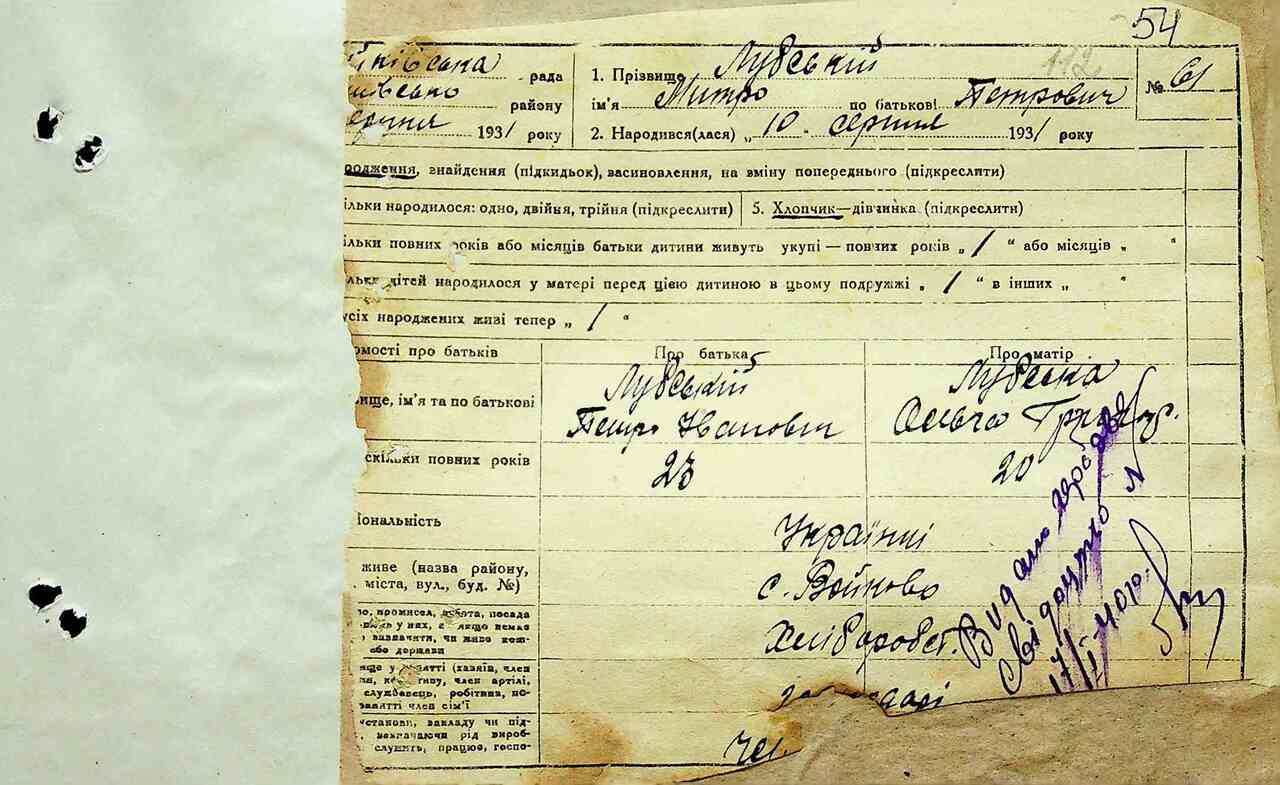 54
№ 61
рада 1. Прізвище Лубський
району ім'я Митро по батькові Петрович
1931 року 2. Народився(лася) „ 10 - серпня 1931 року
родження, знайдення (підкидьок), васиновлення, на вміну попереднього (підкреслити)
ільки народилося: одно, двійня, трійня (підкреслити) 5. Хлопчик—дівчинка (підкреслити)
ільки повних років або місяців батьки дитини живуть укупі — повних років „ 1 “ або місяців „ “
дітей народилося у матері перед цією дитиною в цьому подружжі „ 1 “ в інших „ “
усіх народжених живі тепер „ 1 “
омості про батьків Про батька Про матір
вище, ім'я та по батькові Лубський Лубська
Петро Іванович Ольга
скільки повних років 23 20
іональність Українці
живе (назва району, с. Войково
міста, вул., буд. №)
но, промисел, робота, посада Хліборобст.
у них, а якщо немає
вазначити, чи живе кош
або держави
ище у занятті (хазяїн, член
член артілі,
службовець, робітник, по-
занятті член сім'ї
установи, закладу чи під-
вазначаючи рід вироб-
служить, працює, госпо-
Видано
свідоцтво №
17/I 40 р.